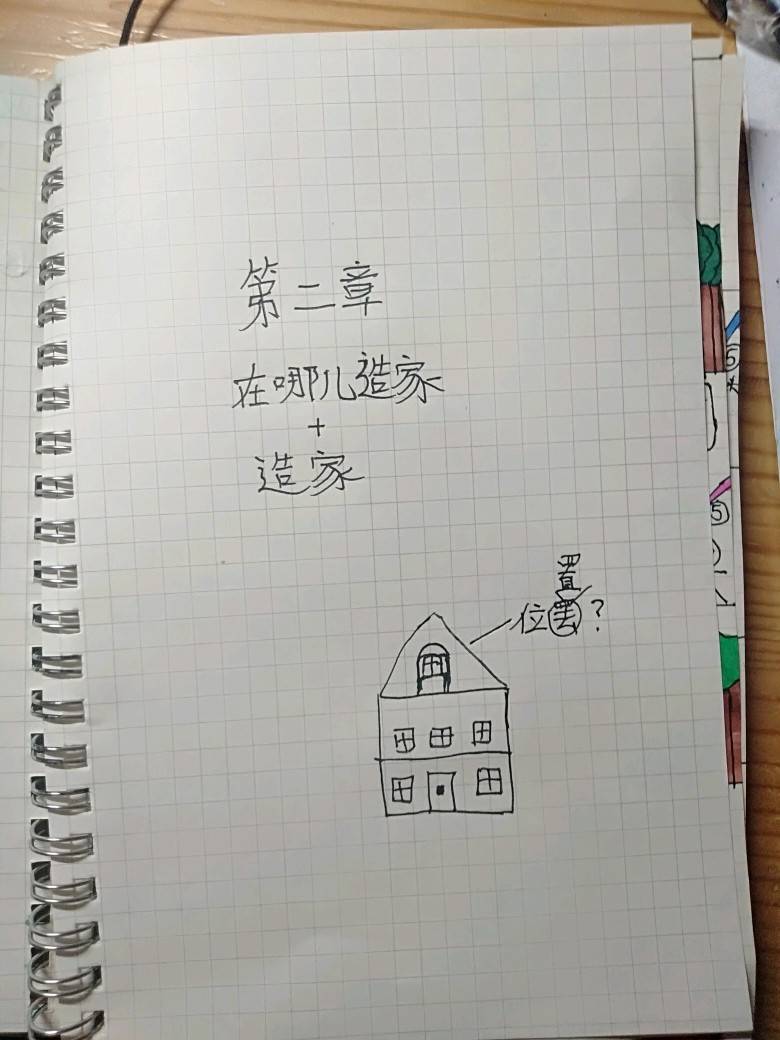 第二章
在哪儿造家
+
造家
置
位罢?
⑤
⑤